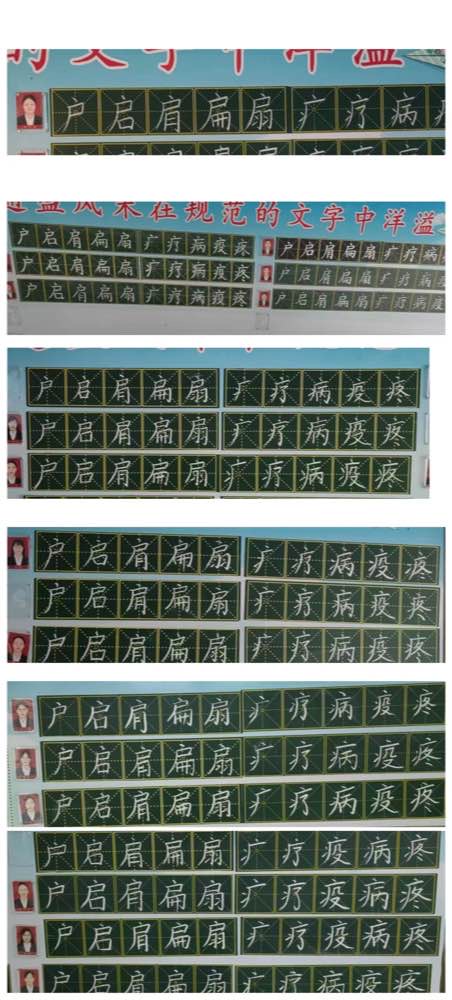 的文字中洋溢
户启肩扁扇疒疗病
风采在规范的文字中洋溢
户启肩扁扇疒疗病疫疼 户启肩扁扇疒疗病
户启肩扁扇疒疗病疫疼 户启肩扁扇疒疗病疫
户启肩扁扇疒疗病疫疼 户启肩扁扇疒疗病疫
户启肩扁扇疒疗病疫疼
户启肩扁扇疒疗病疫疼
户启肩扁扇疒疗病疫疼
户启肩扁扇疒疗病疫疼
户启肩扁扇疒疗病疫疼
户启肩扁扇疒疗病疫疼
户启肩扁扇疒疗病疫疼
户启肩扁扇疒疗病疫疼
户启肩扁扇疒疗病疫疼
户启肩扁扇疒疗疫病疼
户启肩扁扇疒疗疫病疼
户启肩扁扇疒疗疫病疼
户启肩扁扇疒疗疫病疼